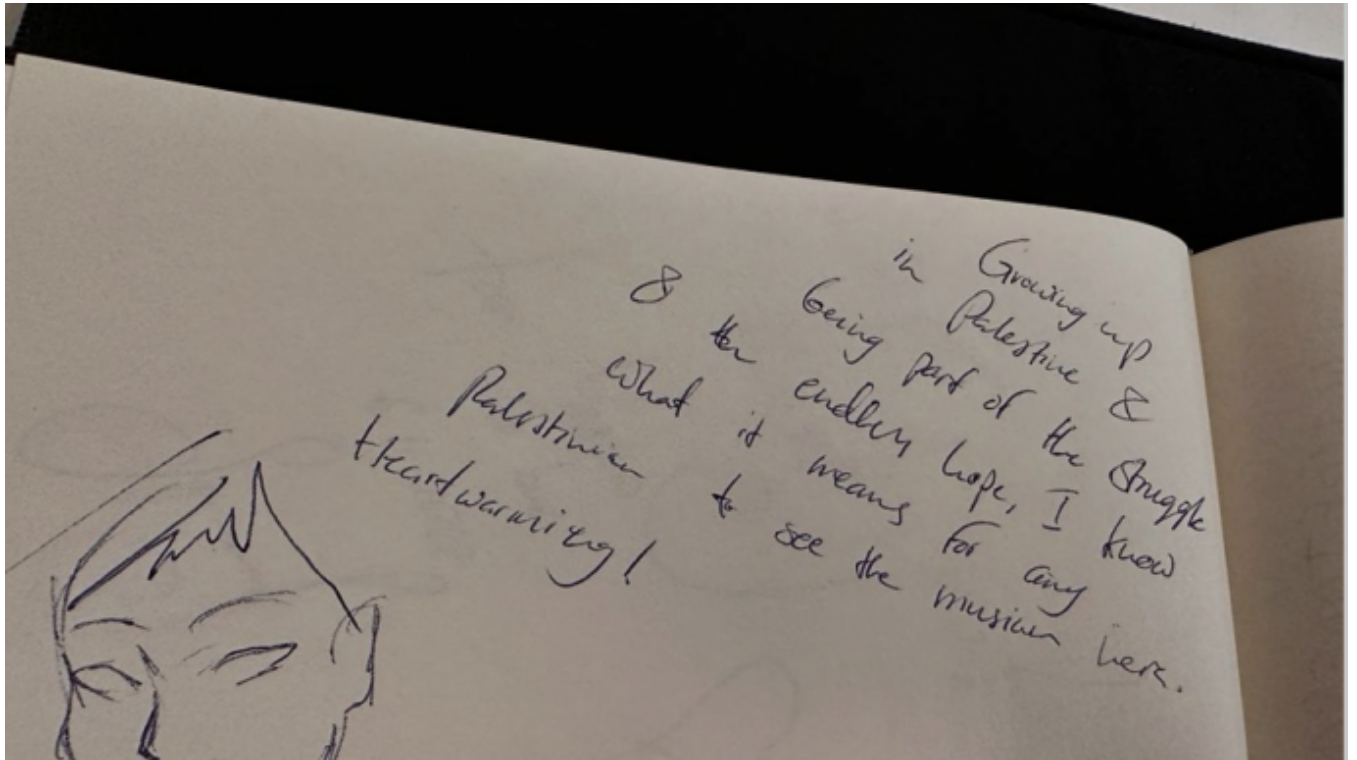 Growing up
in Palestine &
being part of the struggle
& the endless hope, I know
what it means for any
Palestinian to see the musium here.
Heartwarming!